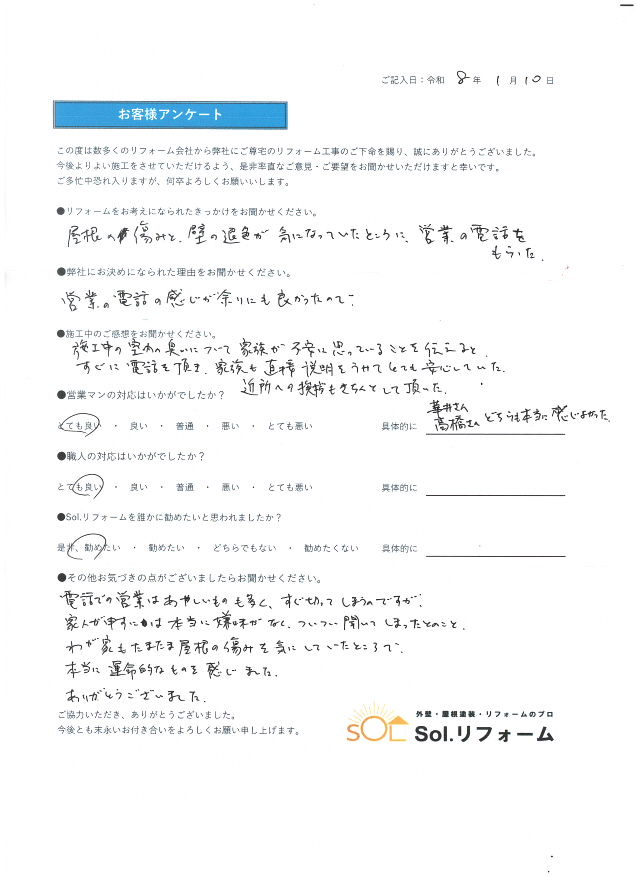 ご記入日：令和 8 年 1 月 10 日
お客様アンケート
この度は数多くのリフォーム会社から弊社にご尊宅のリフォーム工事のご下命を賜り、誠にありがとうございました。
今後よりよい施工をさせていただけるよう、是非率直なご意見・ご要望をお聞かせいただけますと幸いです。
ご多忙中恐れ入りますが、何卒よろしくお願いいします。
●リフォームをお考えになられたきっかけをお聞かせください。
屋根の傷みと、壁の退色が気になっていたところに、営業の電話を
もらいた.
●弊社にお決めになられた理由をお聞かせください。
営業の電話の感じが余りにも良かったので
●施工中のご感想をお聞かせください。
施工中の室内の臭いについて家族が不安に思っていることを伝えると
すぐに電話を頂き、家族も直接説明をうけてとても安心していた.
近所への挨拶もきちんとして頂いた.
●営業マンの対応はいかがでしたか？
とても良い ・ 良い ・ 普通 ・ 悪い ・ とても悪い 具体的に
さん
高橋さん どちらも本当に感じよかった.
●職人の対応はいかがでしたか？
とても良い ・ 良い ・ 普通 ・ 悪い ・ とても悪い 具体的に
●Sol.リフォームを誰かに勧めたいと思われましたか？
是非、勧めたい ・ 勧めたい ・ どちらでもない ・ 勧めたくない 具体的に
●その他お気づきの点がございましたらお聞かせください。
電話での営業はあやしいものも多く、すぐ切ってしまうのですが、
家人が申すには本当に嫌味がなく、ついつい聞いてしまったとのこと.
わが家もたまたま屋根の傷みを気にしていたところで、
本当に運命的なものを感じました.
ありがとうございました.
ご協力いただき、ありがとうございました。
今後とも末永いお付き合いをよろしくお願い申し上げます。
SOL
外壁・屋根塗装・リフォームのプロ
Sol.リフォーム